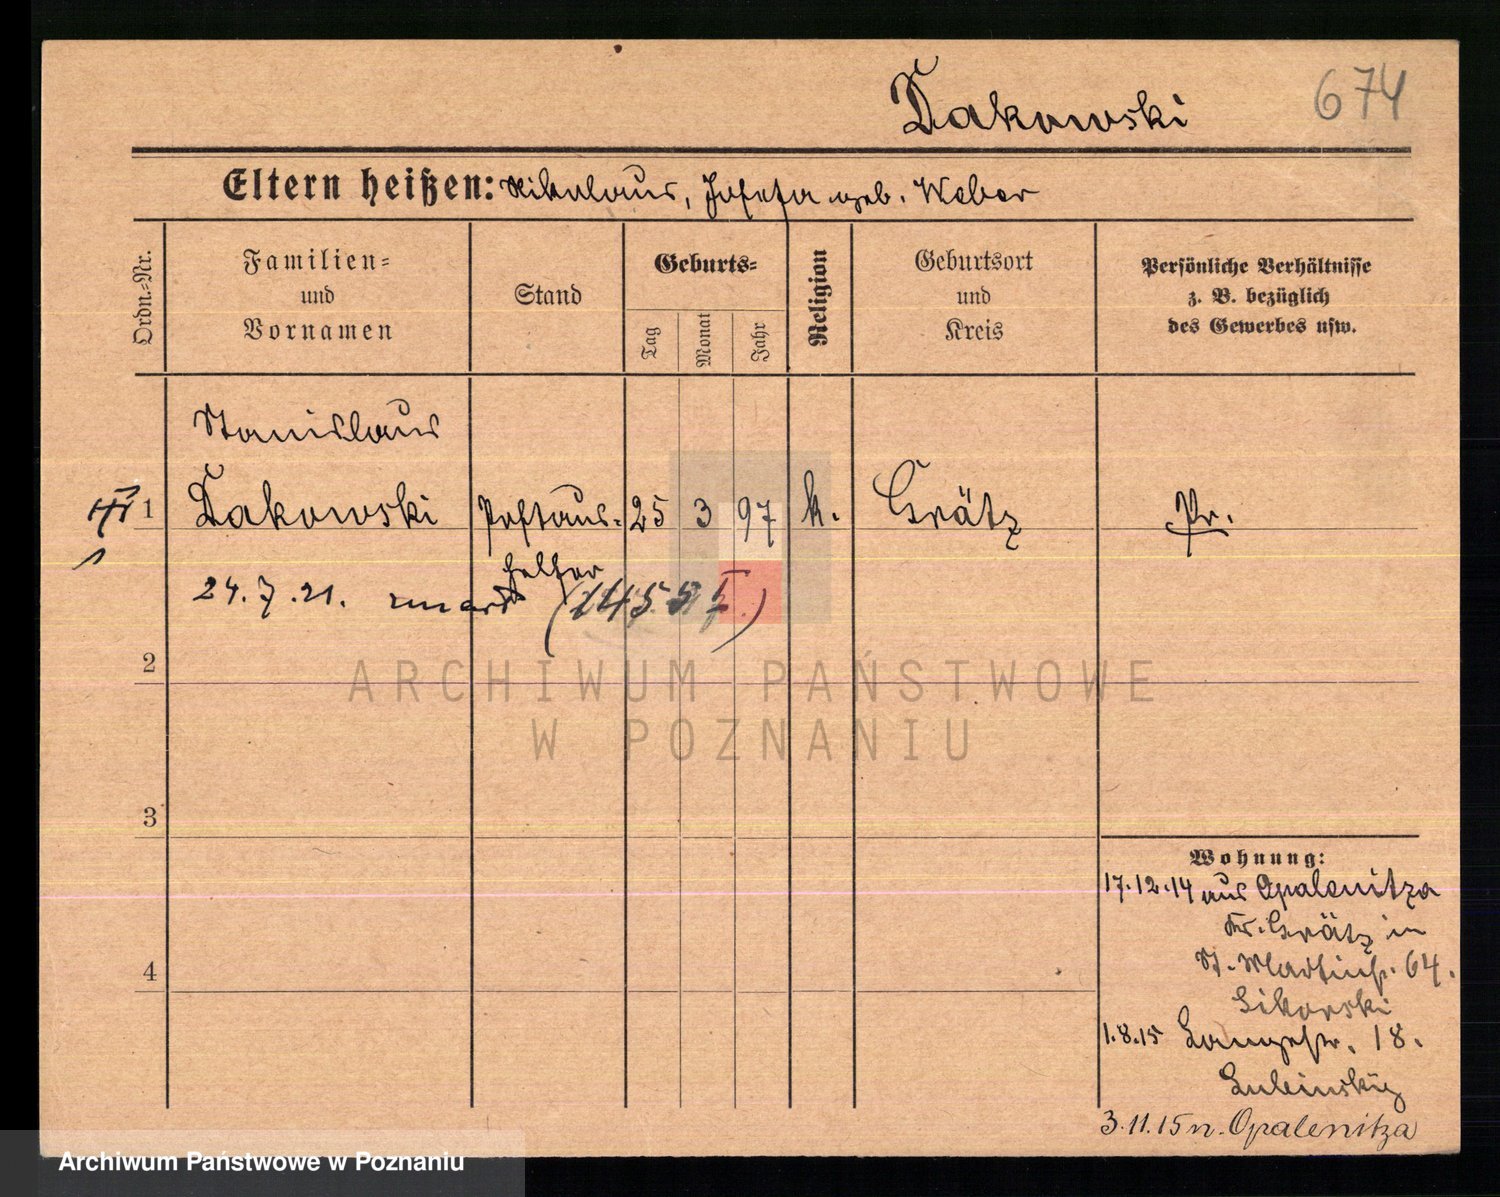 Zakowski
674
Eltern heißen: Nikolaus, Josefa geb. Weber
Ordn.-Nr.
Familien-
und
Vornamen
Stand
Geburts-
Tag
Monat
Jahr
Religion
Geburtsort
und
Kreis
Persönliche Verhältnisse
z. B. bezüglich
des Gewerbes usw.
Stanislaus
1 Zakowski Postaus- 25 3 97 k. Grätz Pr.
helfer
24.7.21.
2
ARCHIWUM PAŃSTWOWE
W POZNANIU
3
Wohnung:
17.12.14 aus Opalenitza
Kr. Grätz in
St. Martinstr. 64.
Sikorski
4
1.8.15 Langestr. 18.
3.11.15 n. Opalenitza
Archiwum Państwowe w Poznaniu